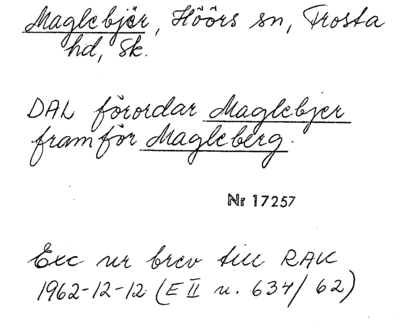 Maglebjär, Höörs sn, Frosta
hd, Sk.
DAL förordar Maglebjer
framför Magleberg.
Nr 17257
Exc ur brev till RAK
1962-12-12 (E II u. 634/62)